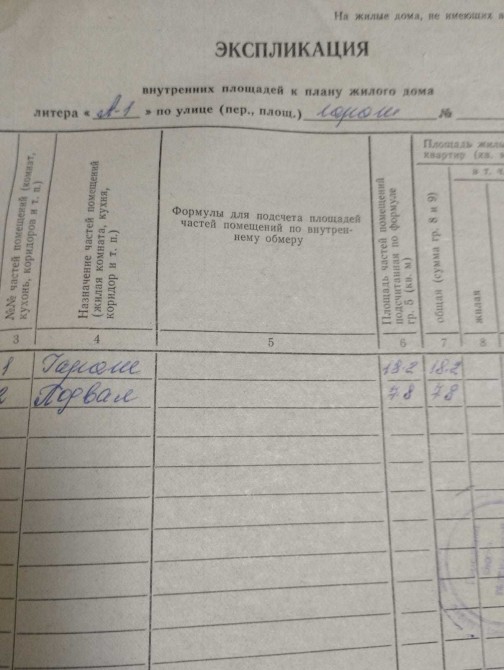 На жилые дома, не имеющих
ЭКСПЛИКАЦИЯ
внутренних площадей к плану жилого дома
литера « А-1 » по улице (пер., площ.) гараж №
№№ частей помещений (комнат, кухонь, коридоров и т. п.)
Назначение частей помещений (жилая комната, кухня, коридор и т. п.)
Формулы для подсчета площадей
частей помещений по внутрен-
нему обмеру
Площадь частей помещений подсчитанная по формуле гр. 5 (кв. м)
Площадь жилых
квартир (кв. м
в т. ч.
общая (сумма гр. 8 и 9)
жилая
3 4 5 6 7 8
1 Гараж 18-2 18-2
2 Подвал 7-8 7-8